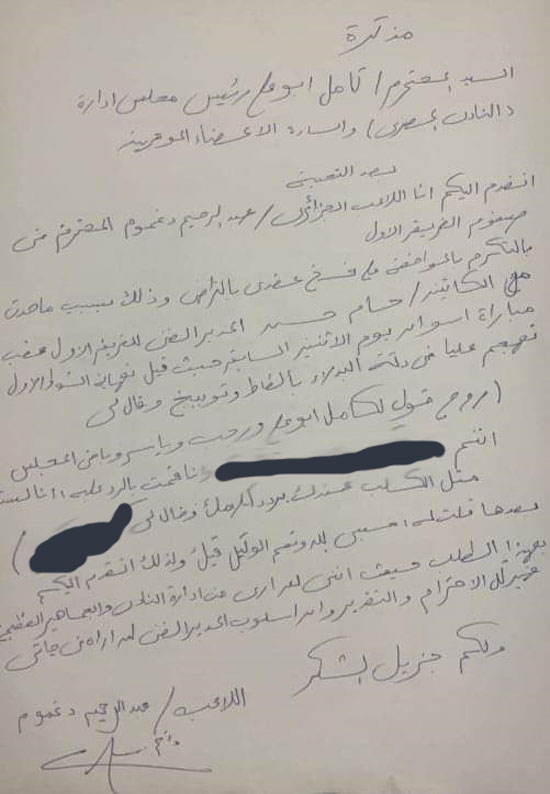 مذكرة
السيد المحترم / كامل ابو علي رئيس مجلس ادارة
(النادى المصرى) والسادة الاعضاء الموقرين
بعد التحية
اتقدم اليكم انا اللاعب الجزائرى / عبد الرحيم دغموم المحترف فى
صفوف الفريق الاول
بالتكرم بالموافقة على فسخ عقدى بالتراضى وذلك بسبب ماحدث
من الكابتن / حسام حسن المدير الفنى للفريق الاول عقب
مباراة اسوان يوم الاثنين السابق حيث قبل نهاية الشوط الاول
تهجم عليا فى دكة البدلاء بالفاظ وتوبيخ وقال لى
(روح قول لكامل ابو علي ورجب وياسر وباقى المجلس
انتم وانا قمت بالرد عليه: انا لست
مثل الكلب عندك بردد كلامك وقال لى )
بعدها قلت له: حسبى الله ونعم الوكيل فيك ولذلك اتقدم اليكم
بهذا الطلب حيث اننى لم ارى من ادارة النادى والجماهير العظيمة
غير كل الاحترام والتقدير وان اسلوب المدير الفنى لم اراه فى حياتى
ولكم جزيل الشكر
اللاعب / عبد الرحيم دغموم